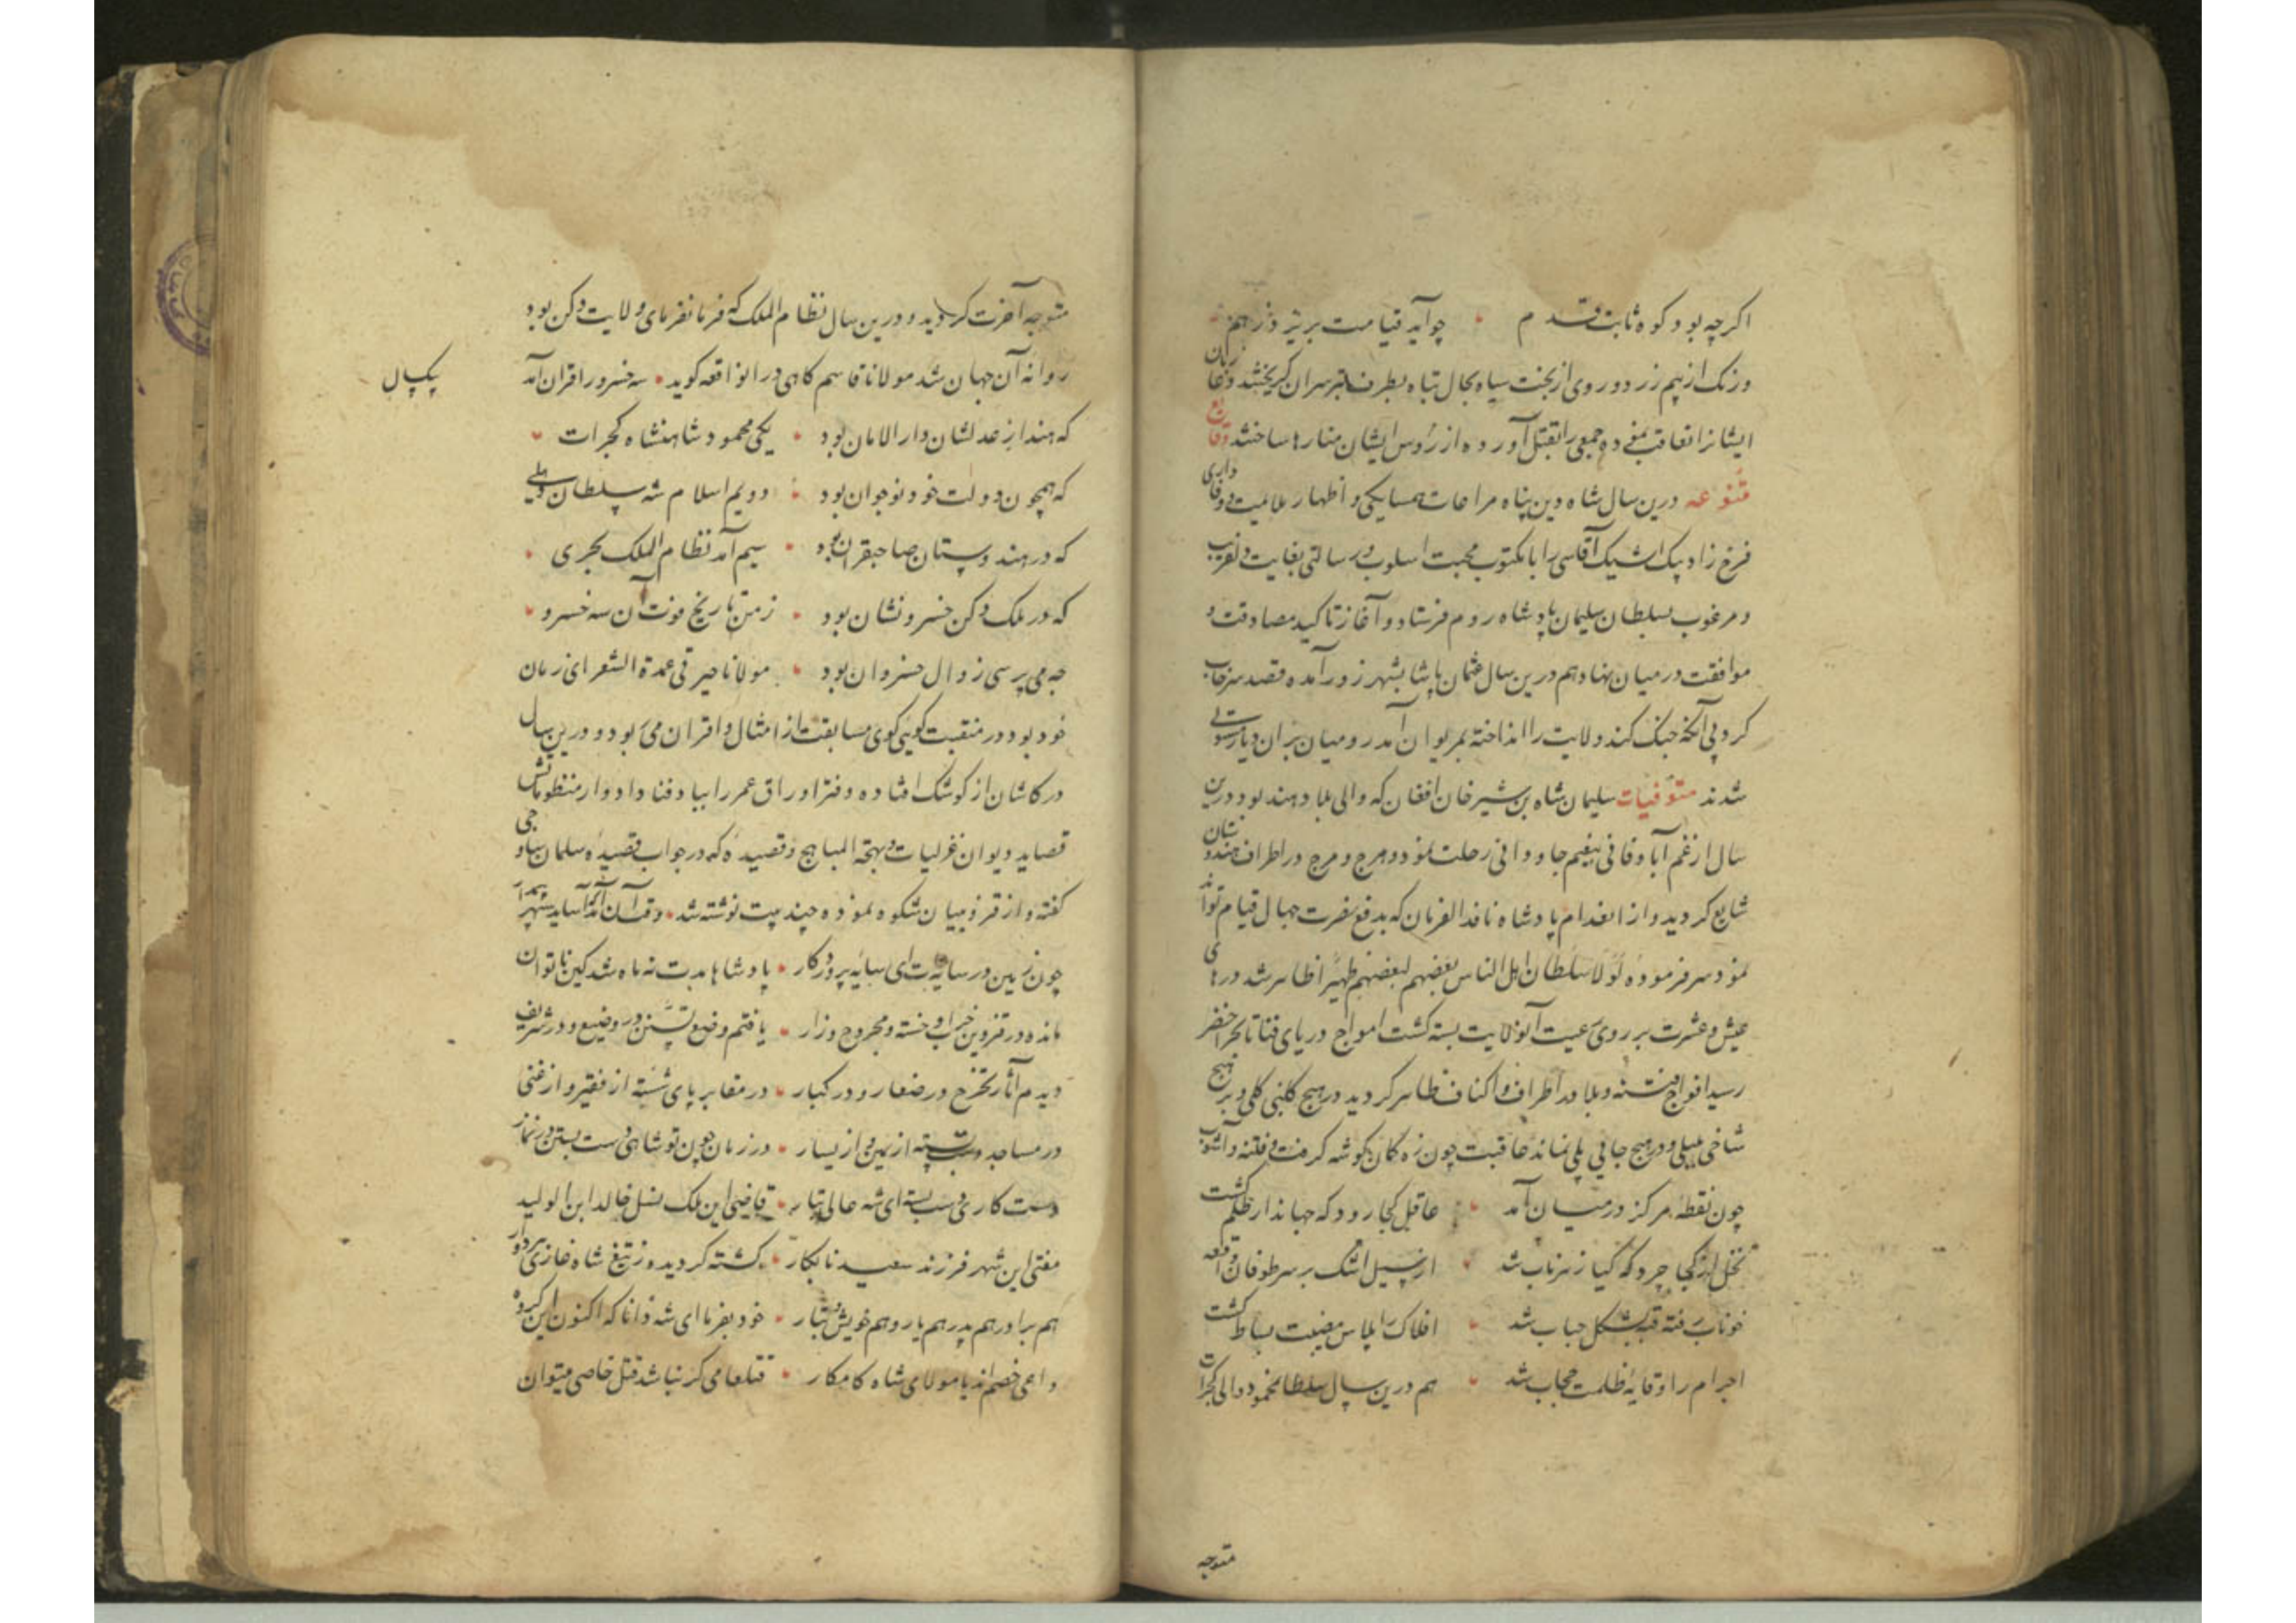 اکرچه بود کوه ثابت قدم • چو آید قیامت بریزد ز هم
و رنک از بیم زرد و روی از بخت سیاه بحال تباه بطرف سران کریختند و غازیان
ایشانرا تعاقب نموده جمعی را بقتل آورده از رؤس ایشان منارها ساختند وقایع
متنوعه درین سال شاه دین پناه مراعات همسایکی و اظهار ملایمیت و وفاداری
فرخ زاد بیک ایشیک آقاسی را با مکتوب محبت اسلوب و رسالتی بغایت دلفریب
و مرغوب بسلطان سلیمان پادشاه روم فرستاد و آغاز تاکید مصادقت و
موافقت در میان نهاد هم درین سال عثمان پاشا بشهر زور آمده قصد سرخاب
کرد بی آنکه جنک کند ولایت را انداخته بمریوان آمد رومیان بران دیار مستولی
شدند متوفیات سلیمان شاه بن شیر خان افغان که والی بلاد هند بود درین
سال از غم آباد فانی بنعیم جاودانی رحلت نمود و هرج و مرج در اطراف هندوستان
شایع کردید و از انعدام پادشاه نافذ الفرمان که بدفع نفرت جهال قیام تواند
نمود سر فرموده لولا سلطان اکل الناس بعضهم لبعضهم ظهیرا ظاهر شد درهای
عیش و عشرت بر روی رعیت آنولایت بسته کشت امواج دریای فنا تا بحر اخضر
رسید افواج فتنه و بلا در اطراف و اکناف ظاهر کردید در هیچ کلبنی کلی و بر هیچ
شاخی بلبلی و در هیچ جائی پلی نماند عاقبت چون زه کمان کوشه کرفت و فتنه و آشوب
چون نقطه مرکز در میان آمد • عاقل کجا رود که جهان دار ظلم کشت
نحل از کجا چرد که کیا زهر ناب شد • از سیل اشک بر سر طوفان واقعه
خوناب رفته قبه بشکل حباب شد • افلاک را پلاس مصیبت بساط کشت
اجرام را وقایه ظلمت حجاب شد • هم درین سال سلطان محمود والی کجرات
متوجه
متوجه آخرت کردید و درین سال نظام الملک که فرمانفرمای ولایت دکن بود
روانه آن جهان شد مولانا قاسم کاهی در انواقعه کوید • سه خسرو را قران آمد
بیکسال
که هند از عدلشان دار الامان بود • یکی محمود شاهنشاه کجرات
که همچون دولت خود نوجوان بود • دویم اسلام شه سلطان دهلی
که در هندوستان صاحبقران بود • سیم آمد نظام الملک بحری
که در ملک دکن خسرو نشان بود • ز من تاریخ فوت آن سه خسرو
چه می پرسی زوال خسروان بود • مولانا حیرتی عمدة الشعرای زمان
خود بود و در منقبت کوئی کوی مسابقت از امثال و اقران می ربود و درین سال
در کاشان از کوشک افتاده دفتر اوراق عمر را بباد فنا داد و از منظوماتش
قصاید دیوان غزلیات و بهجة المباهج و قصیده که در جواب قصیده سلمان ساوجی
کفته و از قزوینیان شکوه نموده چند بیت نوشته شد • وقت آن آمد که آساید سپهر
چون زمین در سایه‌ات ای سایه پروردکار • پادشاها مدت نه ماه شد کین ناتوان
مانده در قزوین خراب و خسته و مجروح و زار • یافتم وضع تسنن در وضیع و در شریف
دیدم آثار تخرج در صغار و در کبار • در مقابر پای شسته از فقیر و از غنی
در مساجد دست بسته از یمین و از یسار • در زمان چون تو شاهی دست بستن در نماز
هست کاری دست بسته ای شه عالی تبار • قاضی این ملک نسل خالد ابن الولید
مفتی این شهر فرزند سعید نابکار • کشته کردید و ز تیغ شاه غازی هر دو را
هم برادر هم پدر هم یار و هم خویش و تبار • خود بفرما ای شه دانا که اکنون این کروه
داعی خصم‌اند یا مولای شاه کامکار • قتلعامی کر نباشد قتل خاصی میتوان